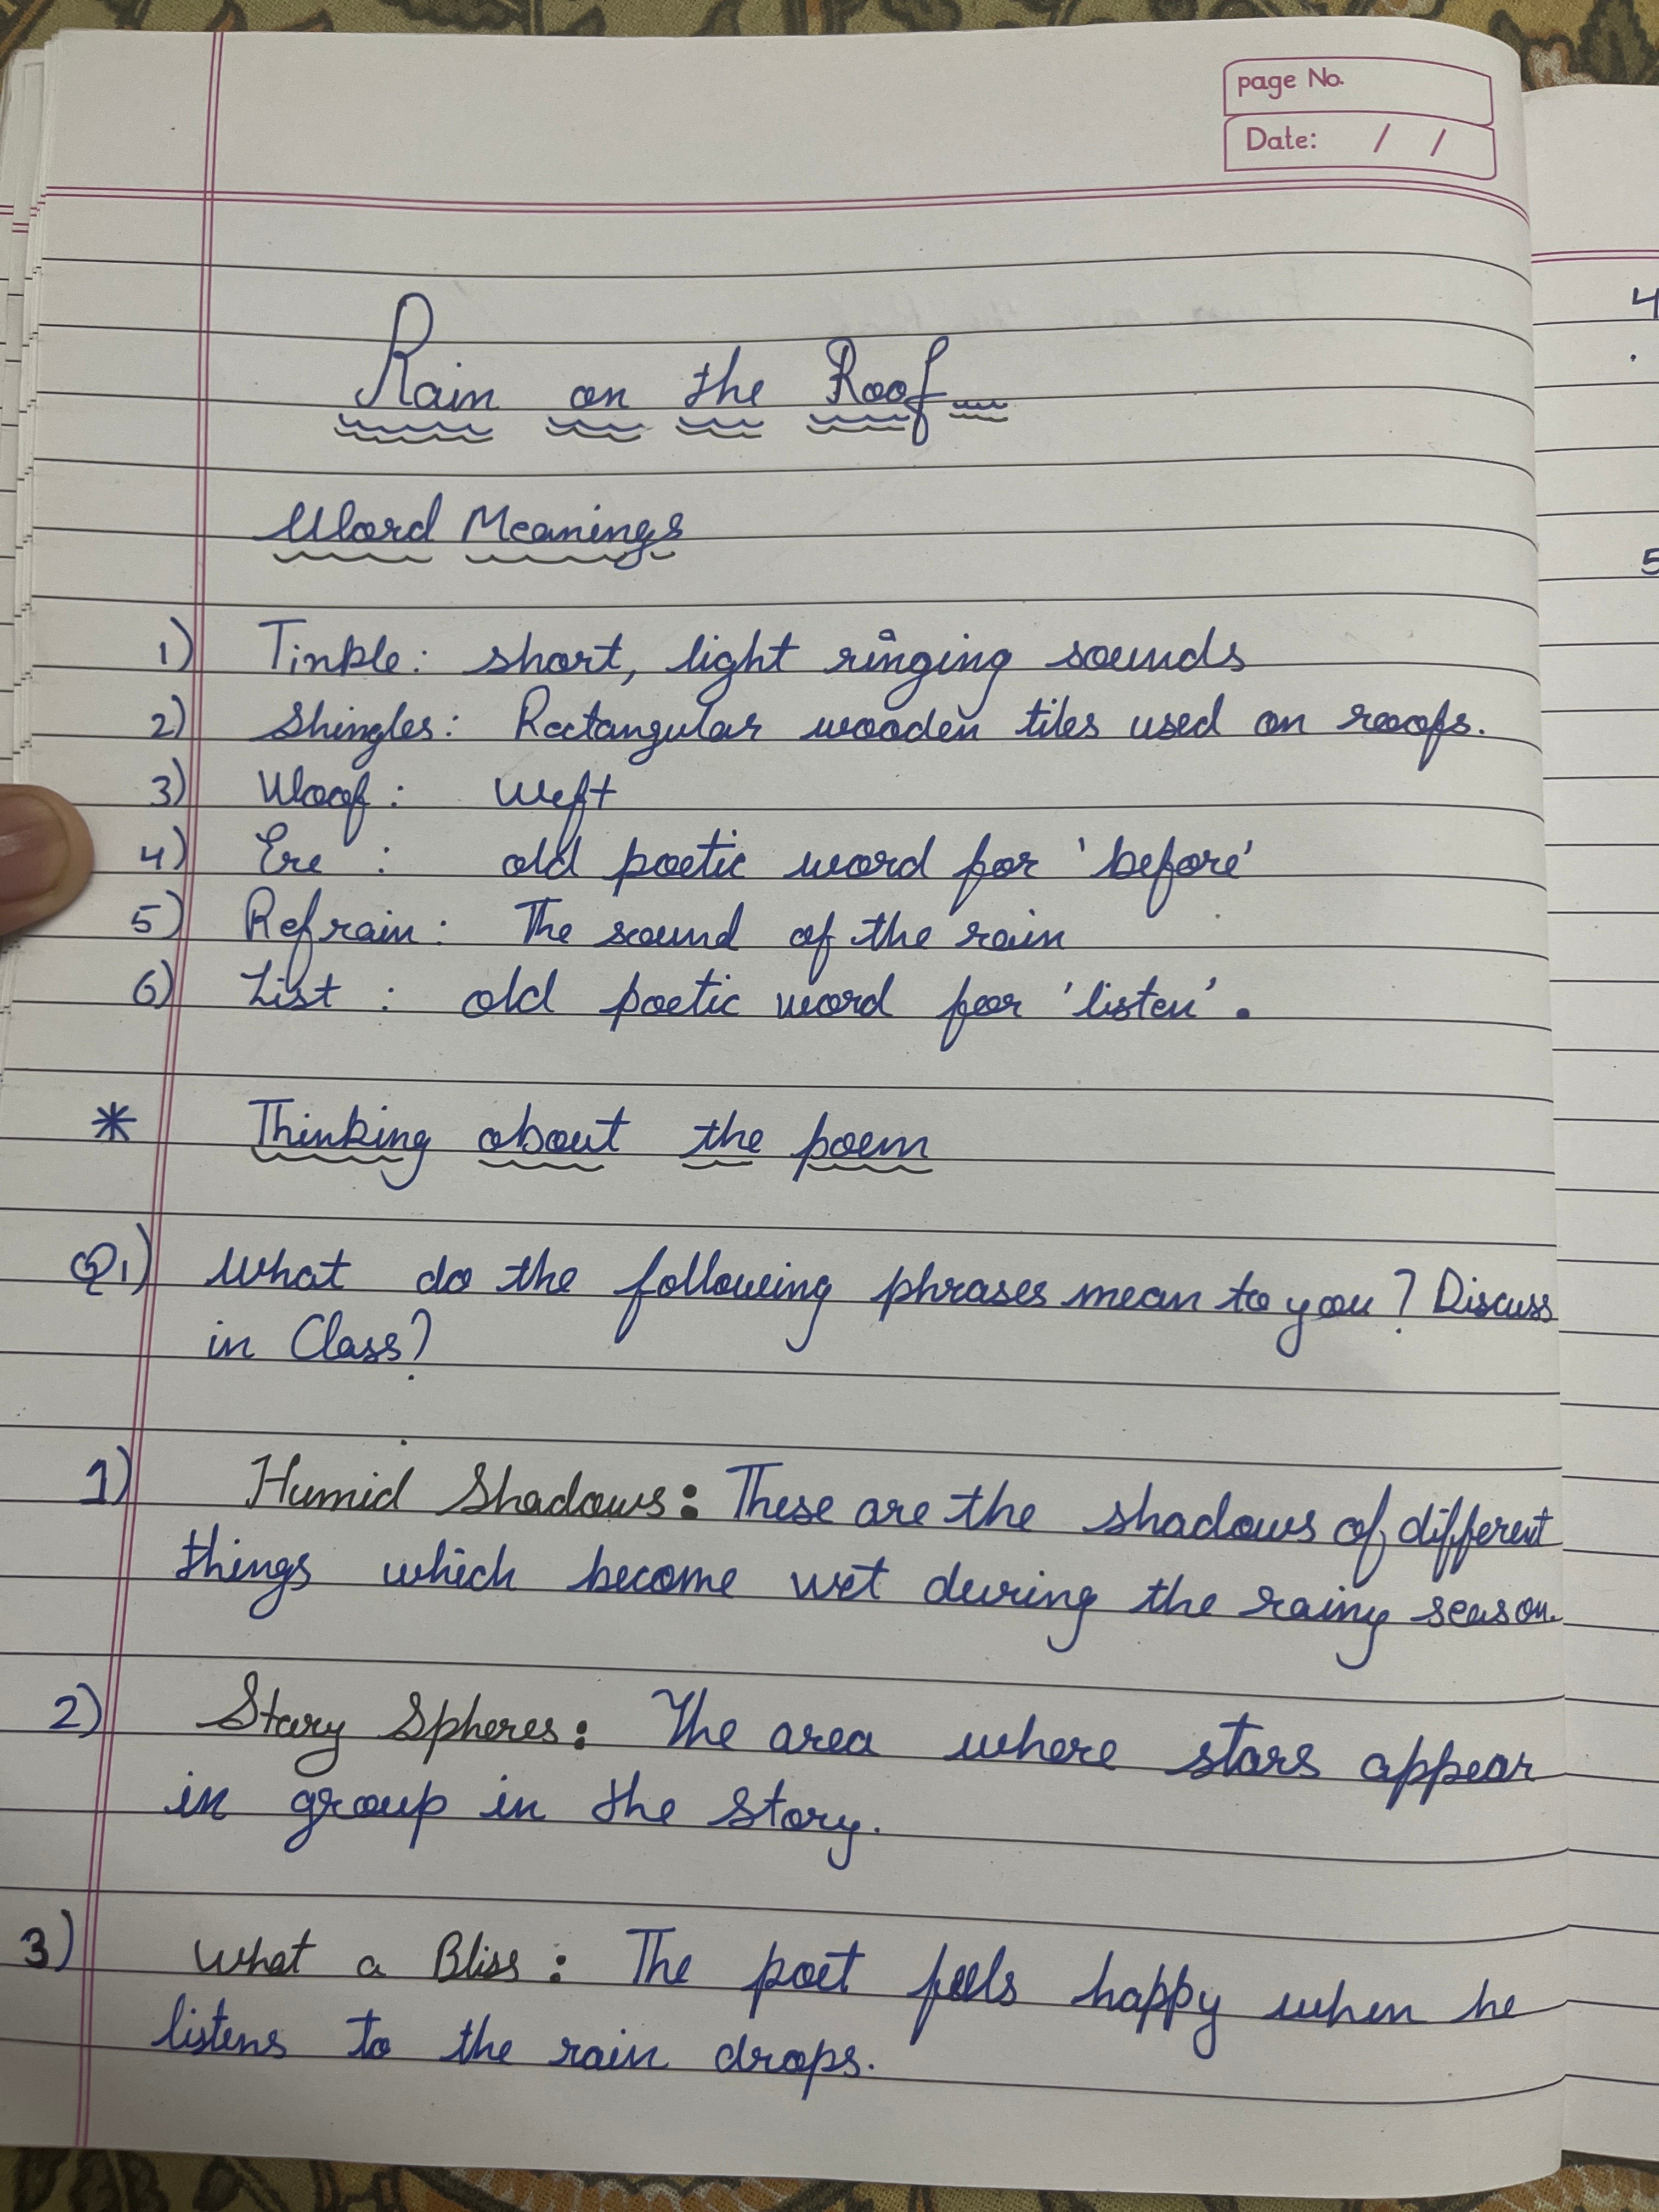 page No.
Date: / /
Rain on the Roof
Word Meanings
1) Tinkle: short, light ringing sounds
2) Shingles: Rectangular wooden tiles used on roofs.
3) Woof: Weft
4) Ere : old poetic word for 'before'
5) Refrain: The sound of the rain
6) List : old poetic word for 'listen'.
* Thinking about the poem
Q1) What do the following phrases mean to you? Discuss
in Class?
1) Humid Shadows: These are the shadows of different
things which become wet during the rainy season.
2) Stary Spheres: The area where stars appear
in group in the story.
3) What a Bliss: The poet feels happy when he
listens to the rain drops.
4
5